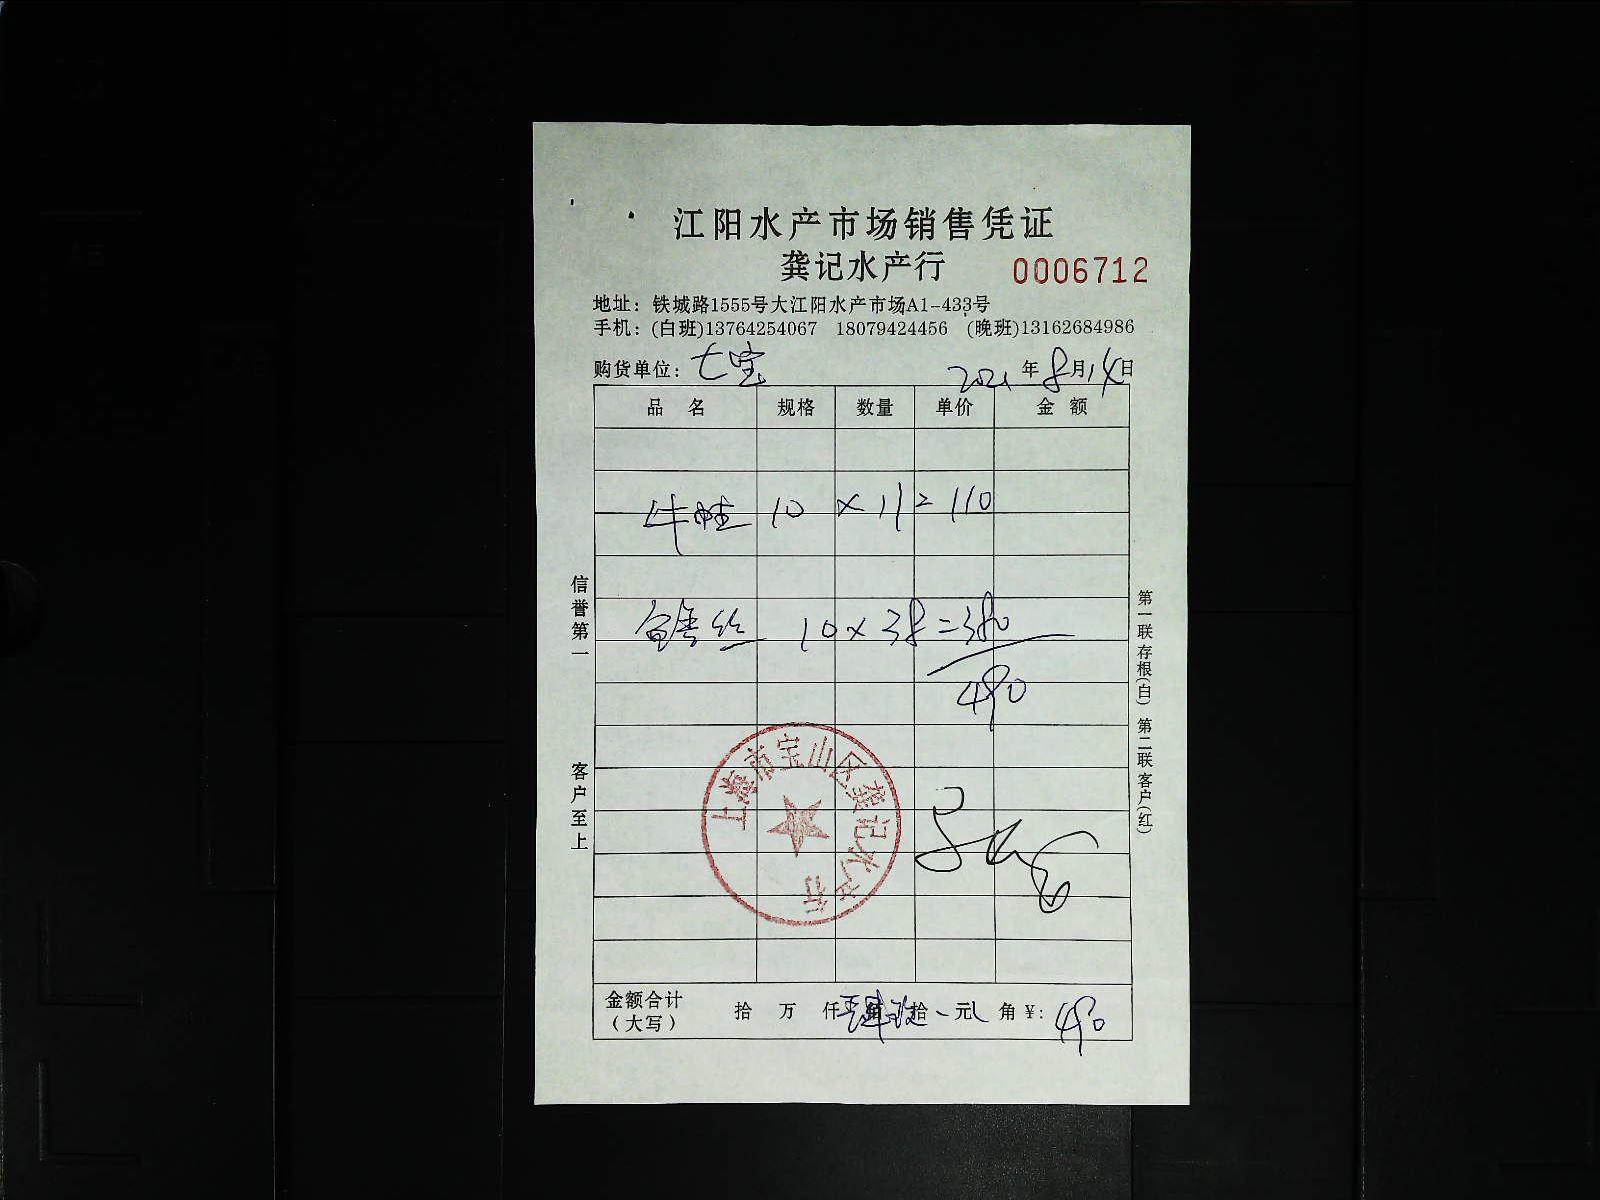 江阳水产市场销售凭证
龚记水产行 0006712
地址：铁城路1555号大江阳水产市场A1-433号
手机：(白班)13764254067 18079424456 (晚班)13162684986
购货单位：七宝 2021年8月14日
品名 规格 数量 单价 金额
牛蛙 10 × 11 = 110
丝 10 × 38 = 380
490
信誉第一
客户至上
第一联存根(白) 第二联客户(红)
上海市宝山区龚记水产行
金额合计
（大写） 拾 万 仟 佰 拾 元 角 ¥: 490